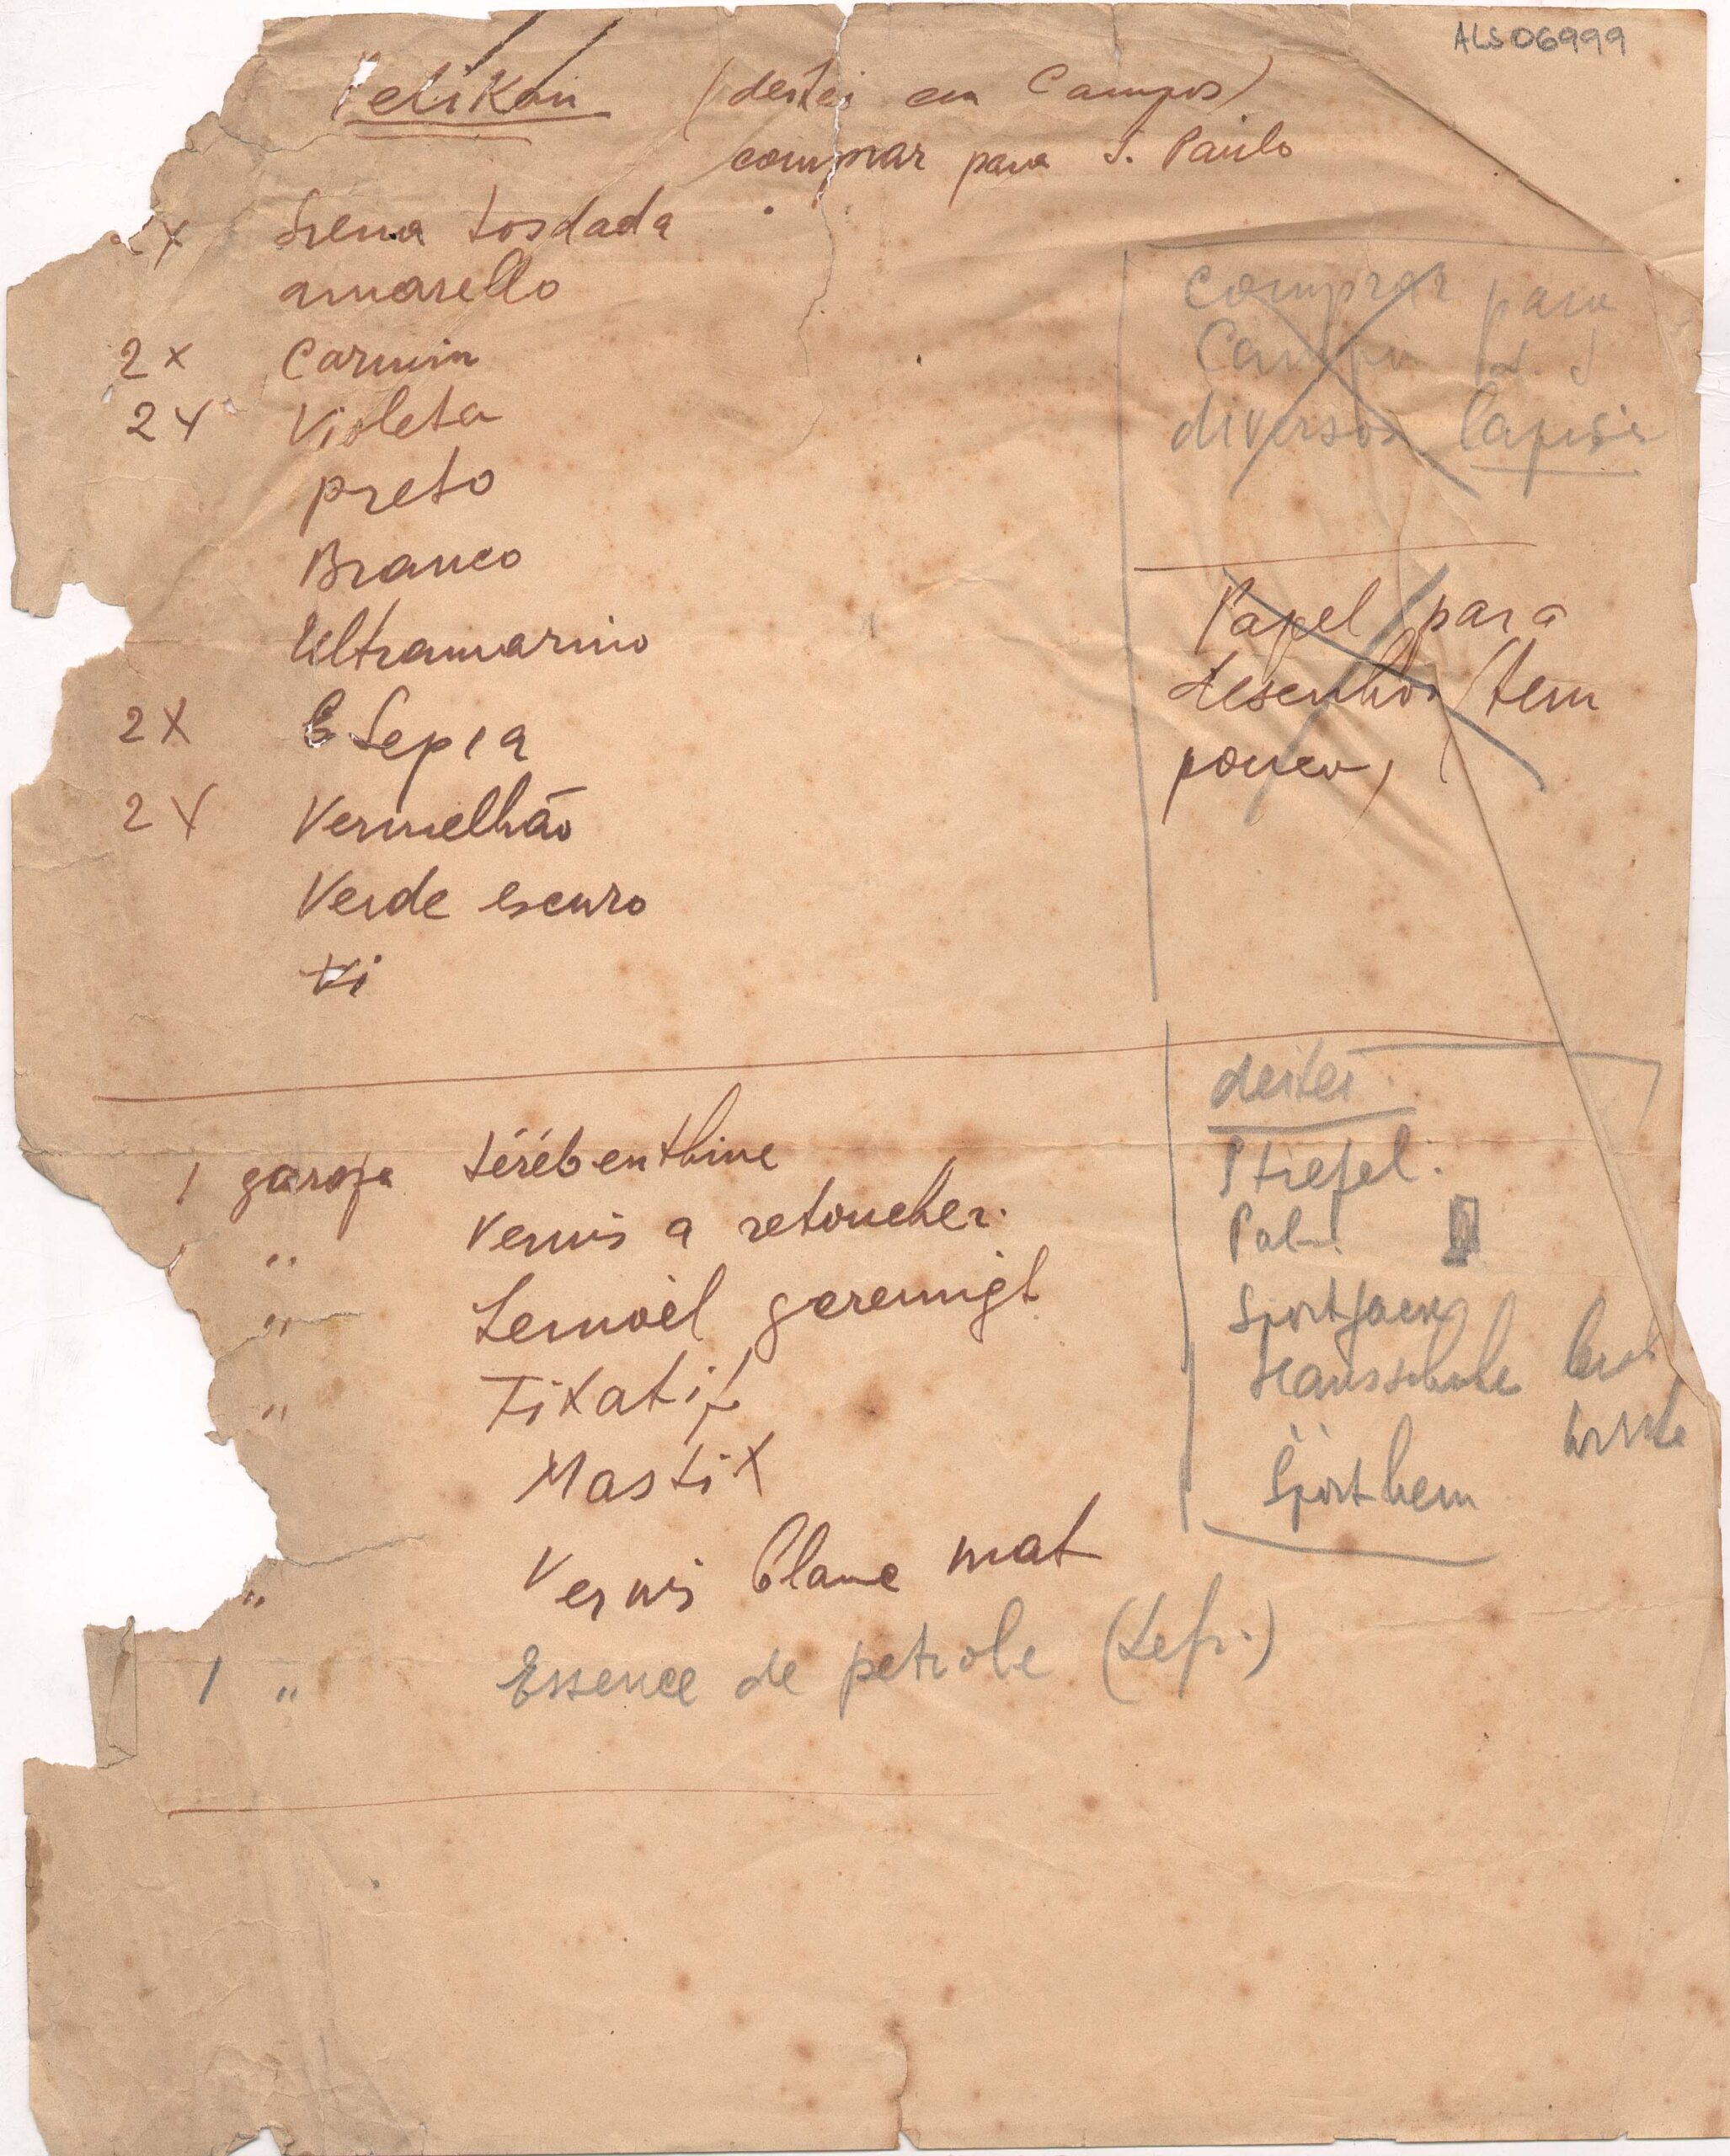 ALS06999
Pelikan (deitei em Campos)
comprar para S. Paulo
x Siena tosdada
amarello
2x Carmin
2x Violeta
preto
Branco
Ultramarino
2x Sepia
2x Vermelhão
Verde escuro
comprar para
Campos d. J
diversos lapisis
Papel para
desenhos (tem
pouco)
1 garafa térébenthine
" Vernis a retoucher.
" Leinoël gereinigt
" Fixatif
Mastix
" Vernis blanc mat
1 " Essence de petrole (Lefr.)
deitei
Stiefel.
Sportjack
Hausschuhe
Sporthem